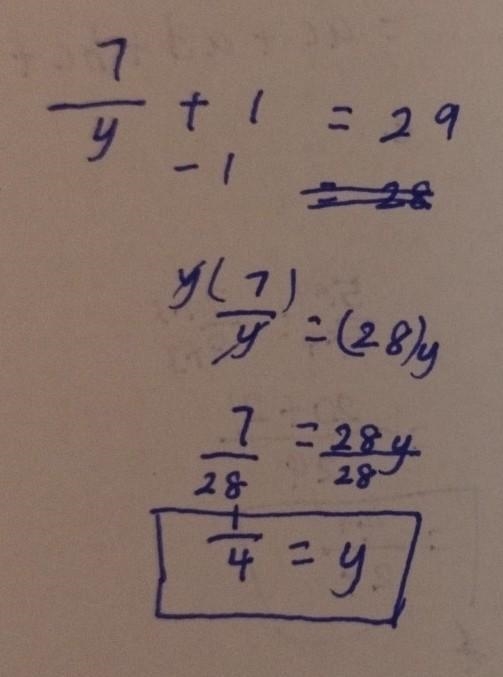 7/y + 1 = 29
- 1 = 28
y(7/y) = (28)y
7/28 = 28y/28
1/4 = y